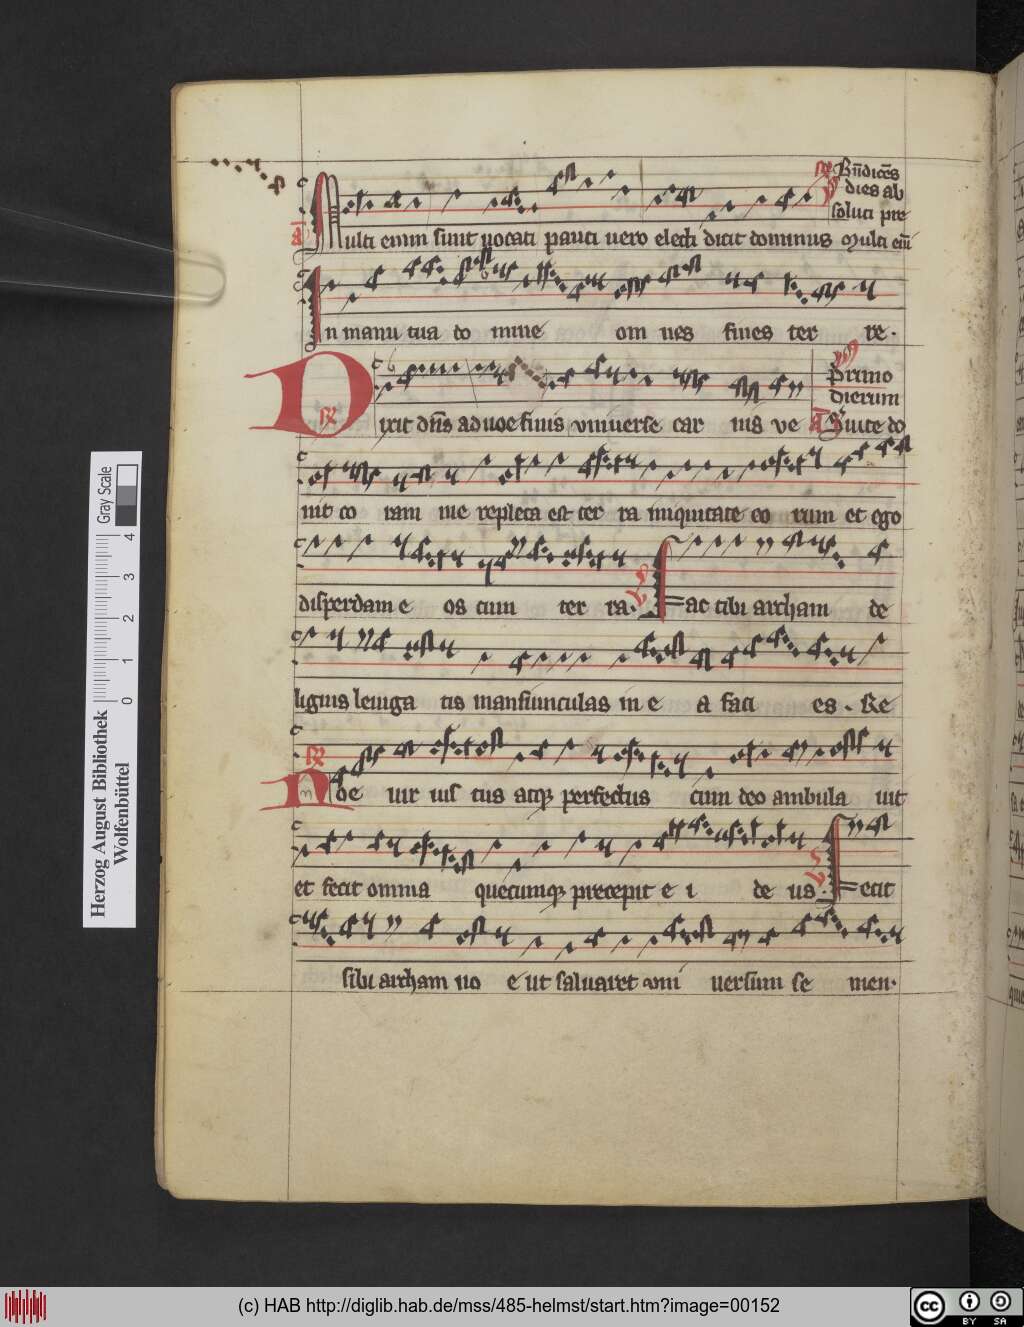 Bn̄dicēs
dies ab
soluti pre
Multi enim sunt uocati pauci uero electi dicit dominus Multi eīm
In manu tua do mine om nes fines ter re.
Primo
dierum
Dixit dn̄s ad noe finis vniuerse car nis ve Uuite do
nit co ram me repleta est ter ra iniquitate eo rum et ego
disperdam e os cum ter ra. Fac tibi archam de
lignis leuiga tis mansiunculas in e a faci es. Re
Noe uir ius tus atqꝫ perfectus cum deo ambula uit
et fecit omnia quecumqꝫ precepit e i de us. Fecit
sibi archam no e ut saluaret vni uersum se men.
Gray Scale
4
3
2
1
0
Herzog August Bibliothek
Wolfenbüttel
(c) HAB http://diglib.hab.de/mss/485-helmst/start.htm?image=00152
cc BY SA